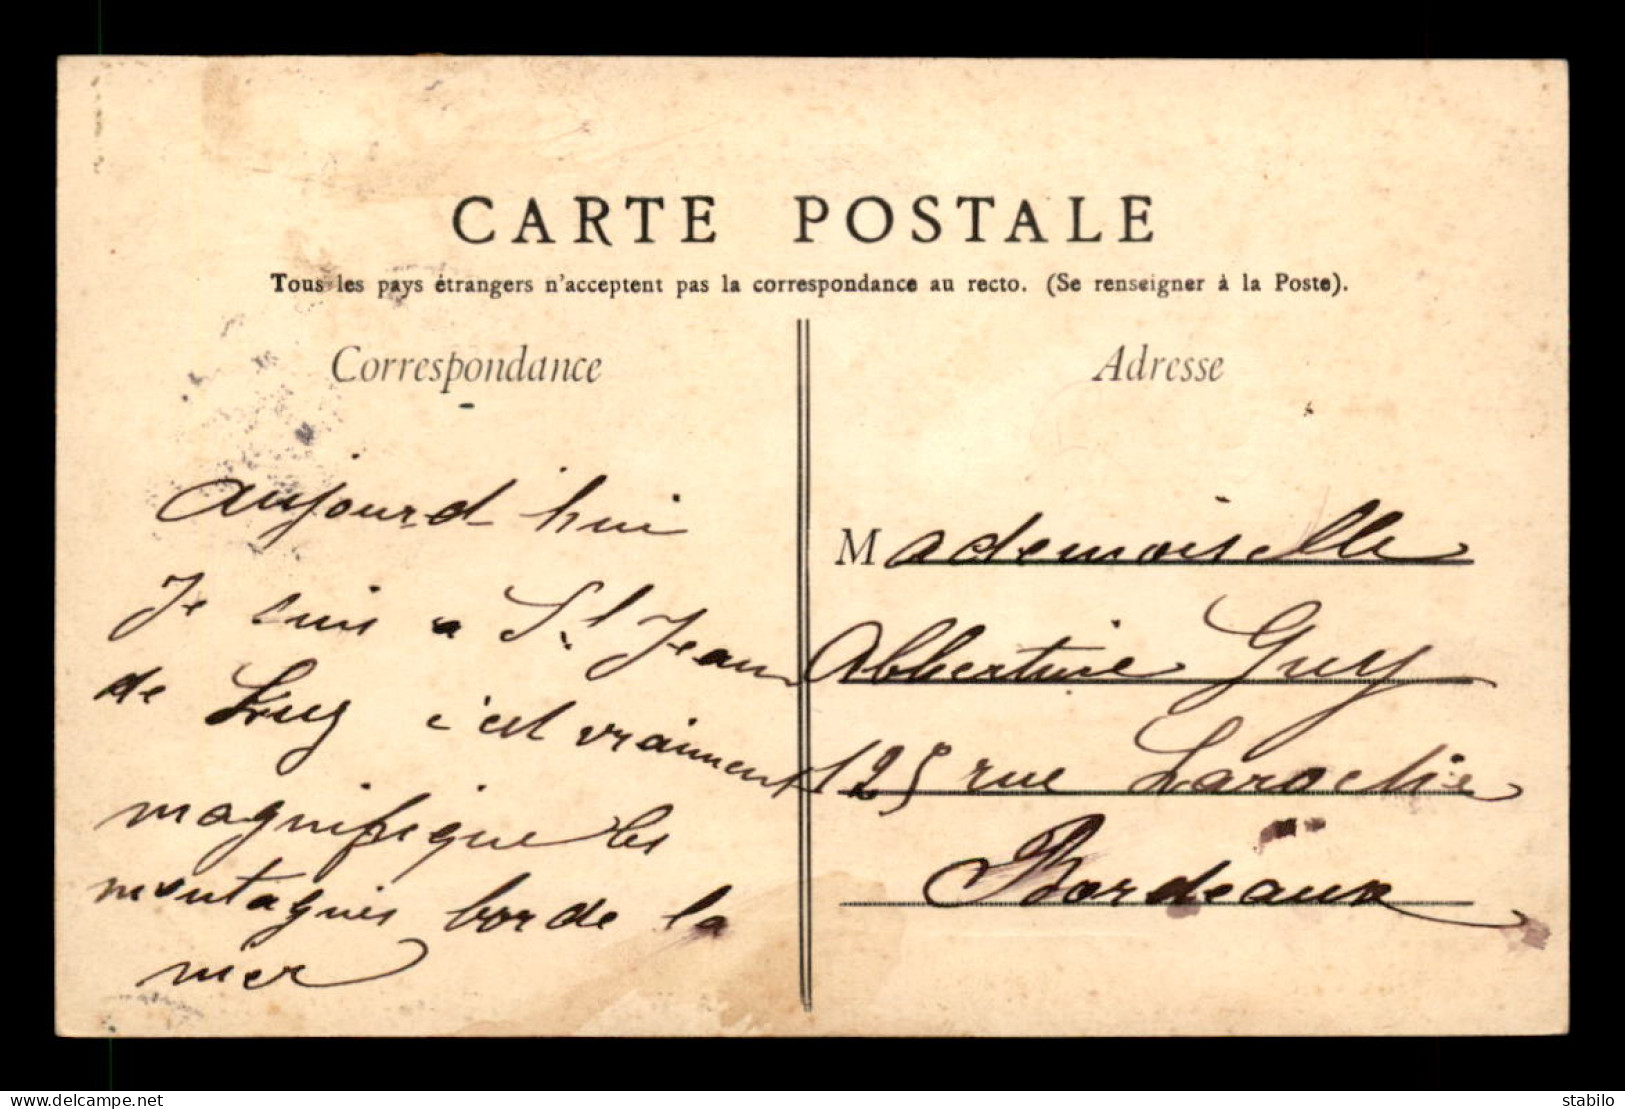 CARTE POSTALE
Tous les pays étrangers n'acceptent pas la correspondance au recto. (Se renseigner à la Poste).
Correspondance
aujourd'hui
Je suis a St Jean
de Luz c'est vraiment
magnifique les
montagnes borde la
mer
Adresse
Mademoiselle
Albertine Guy
125 rue Laroche
Bordeaux
www.delcampe.net
stabilo